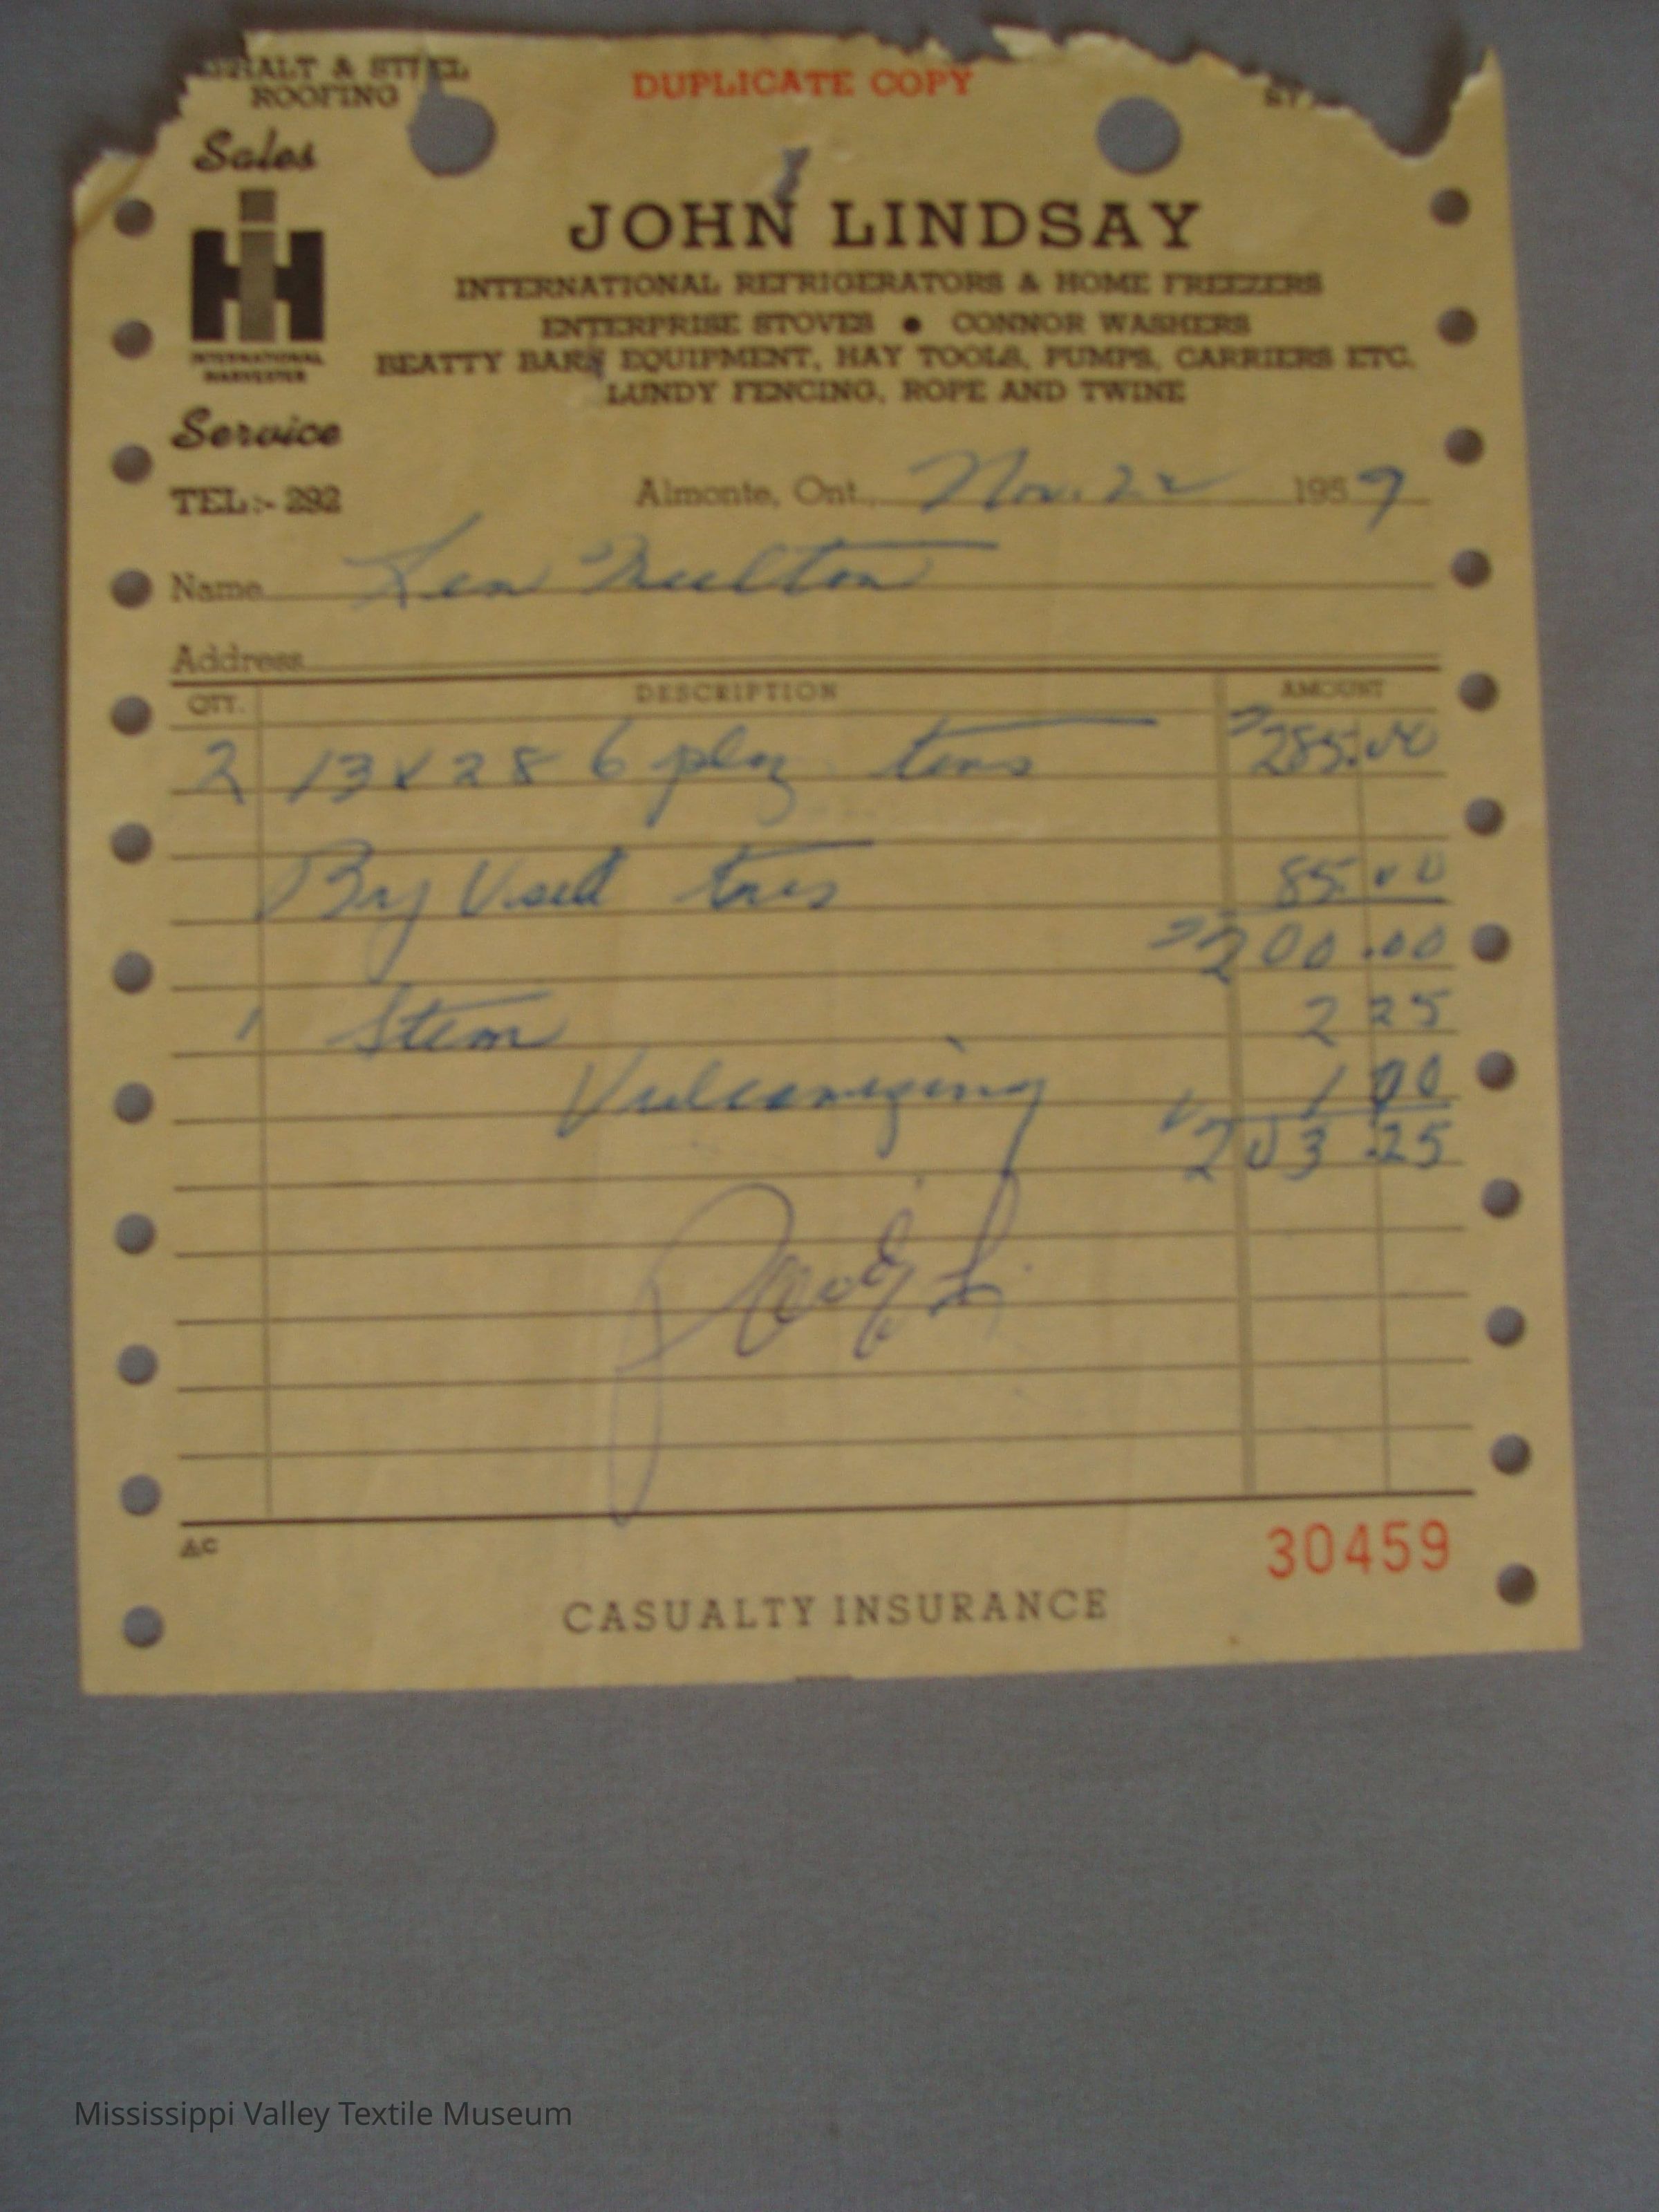 ASPHALT & STEEL
ROOFING
DUPLICATE COPY
Sales
IH
INTERNATIONAL
HARVESTER
Service
TEL:- 292
JOHN LINDSAY
INTERNATIONAL REFRIGERATORS & HOME FREEZERS
ENTERPRISE STOVES • CONNOR WASHERS
BEATTY BARN EQUIPMENT, HAY TOOLS, PUMPS, CARRIERS ETC.
LUNDY FENCING, ROPE AND TWINE
Almonte, Ont., Nov. 22 1959
Name Len
Address
QTY. DESCRIPTION AMOUNT
2 13 x 28 6 ply tires $285.00
By Used tires 85.00
$200.00
1 Stem 2 25
Vulcanizing 1 00
$203.25
AC
30459
CASUALTY INSURANCE
Mississippi Valley Textile Museum